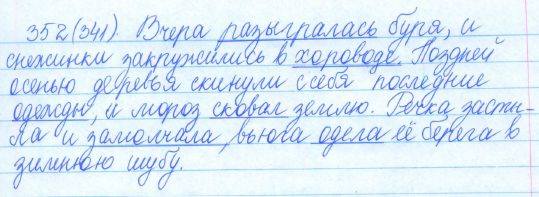 352(341). Вчера разыгралась буря, и
снежинки закружились в хороводе. Поздней
осенью деревья скинули с себя последние
одежды, и мороз сковал землю. Речка засты-
ла и замолчала, вьюга одела её берега в
зимнюю шубу.